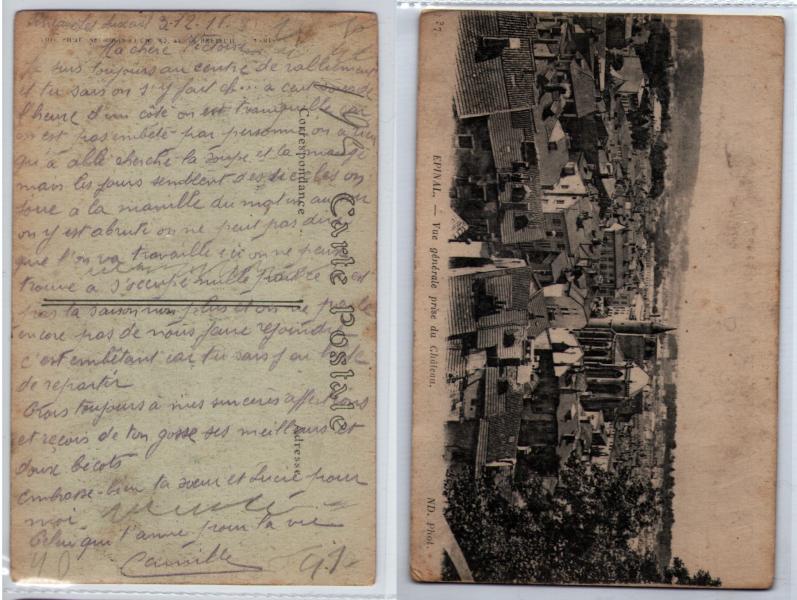 3-12-11
Ma chère Victoire
Je suis toujours au centre de ralliement
et tu sais on s'y fait ch... à cent sous de
l'heure d'un côté on est tranquille car
on est pas embêté par personne on a rien
qu'à allé cherché la soupe et la mangé
mais les jours semblent des siècles on
joue à la manille du matin au soir
on y est abruti on ne peut pas dire
que l'on va travaillé ici on ne peut
trouvé à s'occupé nulle part ce n'est
pas la saison non plus et on ne parle
encore pas de nous faire rejoindre
c'est embêtant car tu sais j'ai hâte
de repartir
Crois toujours à mes sincères affections
et reçois de ton gosse ses meilleurs et
doux bécots
embrasse bien ta sœur et Lucie pour
moi
Celui qui t'aime pour la vie
Camille
Carte Postale
Correspondance
Adresse
27
EPINAL. — Vue générale prise du Château.
ND. Phot.